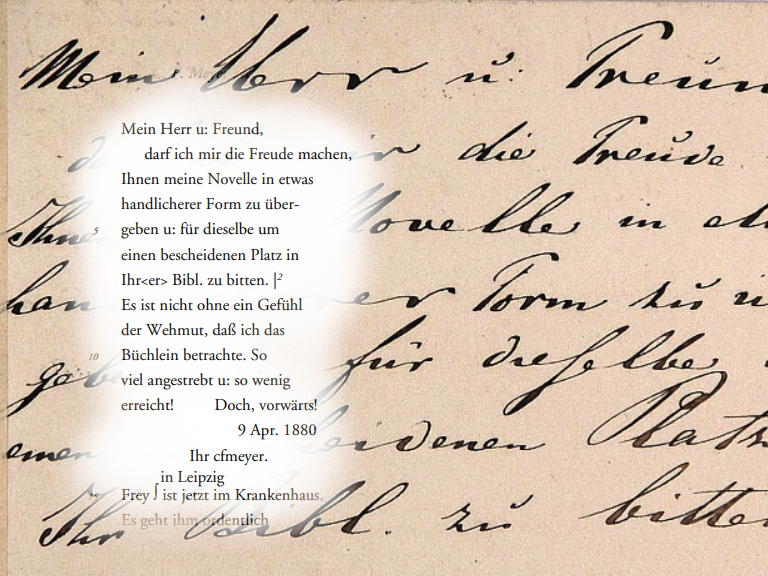 Mein Herr u: Freun
die Freude
Novelle in
Form zu
für dieselbe
Platz
Ihr Bibl. zu bitten
Mein Herr u: Freund,
darf ich mir die Freude machen,
Ihnen meine Novelle in etwas
handlicherer Form zu über-
5 geben u: für dieselbe um
einen bescheidenen Platz in
Ihr<er> Bibl. zu bitten. |2
Es ist nicht ohne ein Gefühl
der Wehmut, daß ich das
10 Büchlein betrachte. So
viel angestrebt u: so wenig
erreicht! Doch, vorwärts!
9 Apr. 1880
Ihr cfmeyer.
in Leipzig
Frey ⌠ ist jetzt im Krankenhaus.
Es geht ihm ordentlich